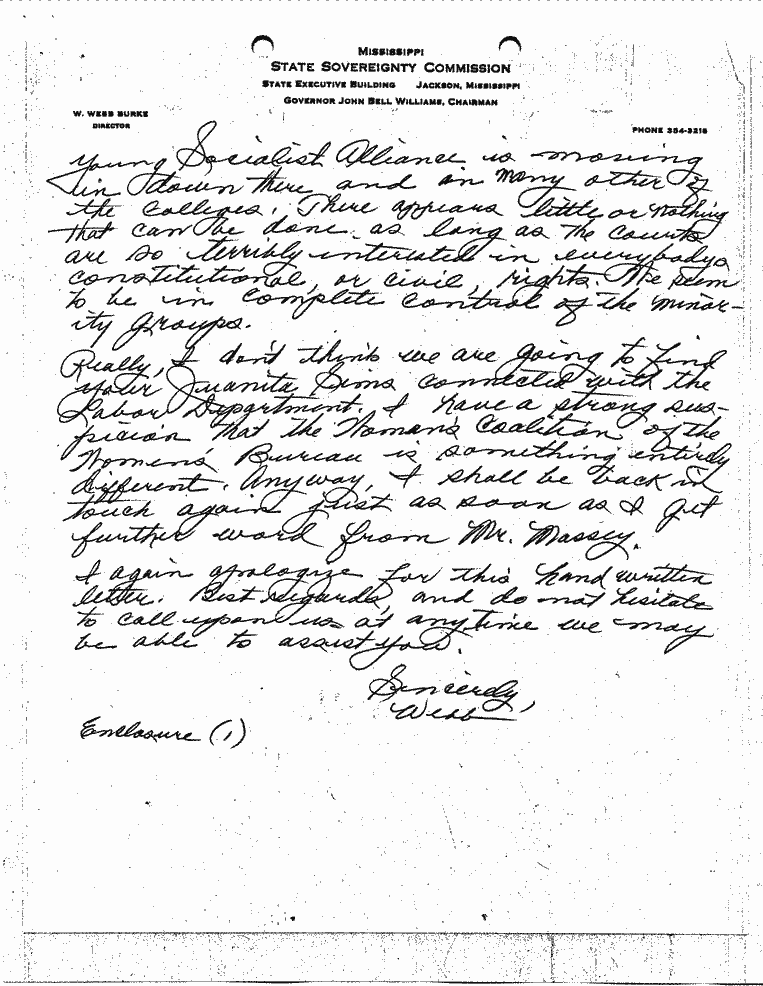 MISSISSIPPI
STATE SOVEREIGNTY COMMISSION
STATE EXECUTIVE BUILDING JACKSON, MISSISSIPPI
GOVERNOR JOHN BELL WILLIAMS, CHAIRMAN
W. WEBB BURKE
DIRECTOR
PHONE 354-3218
Young Socialist Alliance is moving
in down there and in many other of
the colleges. There appears little or nothing
that can be done as long as the courts
are so terribly interested in everybodys
constitutional, or civil, rights. We seem
to be in complete control of the minor-
ity groups.
Really, I don't think we are going to find
your Juanita Sims connected with the
Labor Department. I have a strong sus-
picion that the Woman's Coalition of the
Women's Bureau is something entirely
different. Anyway, I shall be back in
touch again just as soon as I get
further word from Mr. Massey.
I again apologize for this hand written
letter. Best regards, and do not hesitate
to call upon us at anytime we may
be able to assist you.
Sincerely,
Webb
Enclosure (1)